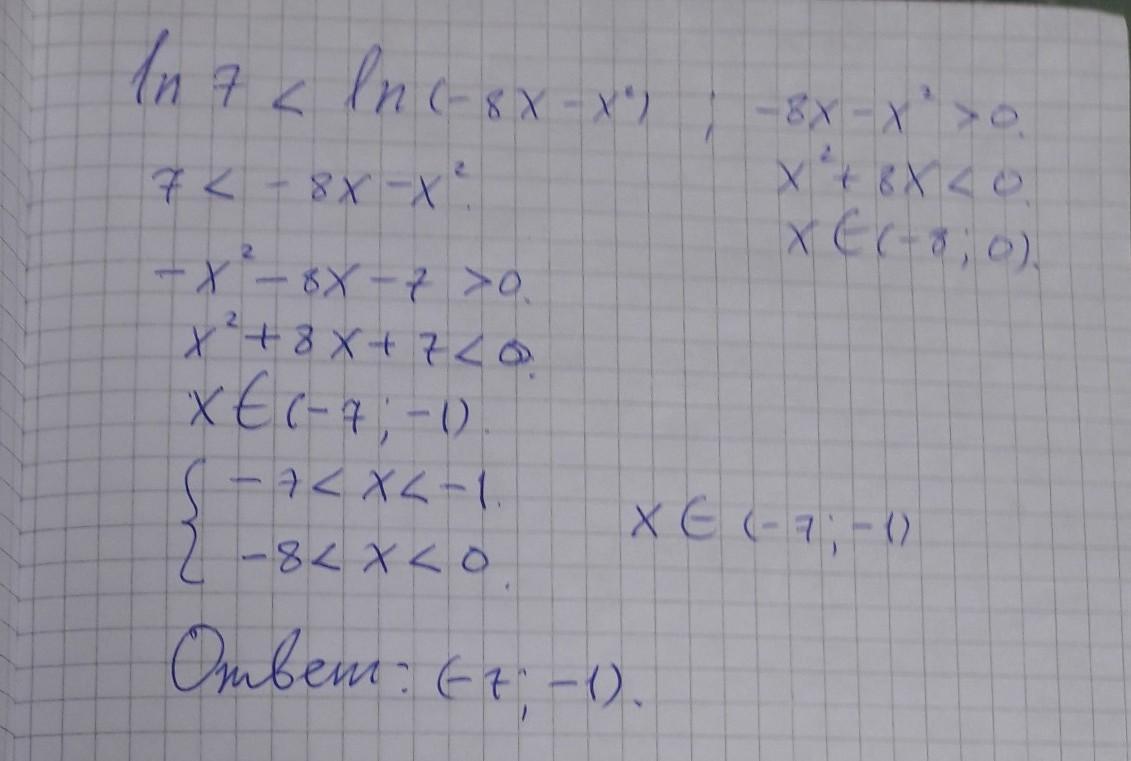 ln 7 < ln (-8x - x²) ; -8x - x² > 0.
7 < -8x - x². x² + 8x < 0.
x ∈ (-8; 0).
-x² - 8x - 7 > 0.
x² + 8x + 7 < 0.
x ∈ (-7; -1).
{ -7 < x < -1.
-8 < x < 0. x ∈ (-7; -1)
Ответ: (-7; -1).